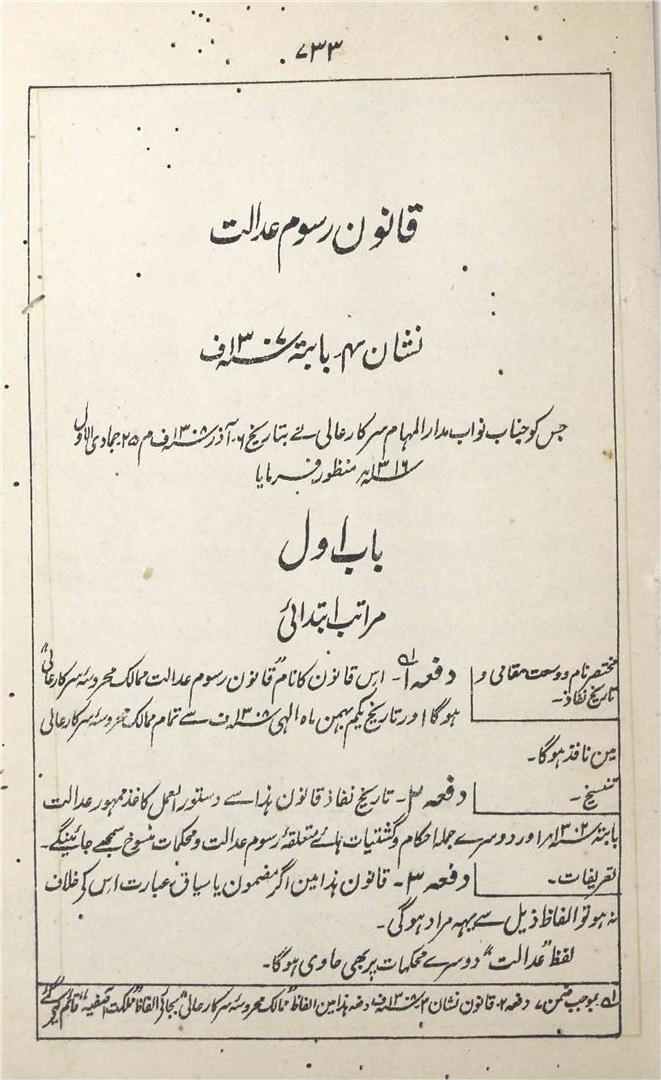 ۷۳۳
قانون رسوم عدالت
نشان ۴۔ بابتہ ۱۳۰۷ف
جس کو جناب نواب مدار المہام سرکار عالی نے بتاریخ ۶۔ آذر ۱۳۰۸ف م ۲۵ جمادی الاول
۱۳۱۶ھ منظور فرمایا
باب اول
مراتب ابتدائی
مختصر نام و وسعت مقامی و
تاریخ نفاذ۔
دفعہ ۱۔ اس قانون کا نام "قانون رسوم عدالت ممالک محروسہ سرکار عالی"
ہوگا اور تاریخ یکم بہمن ماہ الہی ۱۳۰۸ف سے تمام ممالک محروسہ سرکار عالی
مین نافذ ہوگا۔
تنسیخ۔
دفعہ ۲۔ تاریخ نفاذ قانون ہذا سے دستور العمل کاغذ ممہور عدالت
بابتہ ۱۳۰۲ھ اور دوسرے جملہ احکام و گشتیات ہائے متعلقہ رسوم عدالت و محکمات منسوخ سمجھے جائینگے۔
تعریفات۔
دفعہ ۳۔ قانون ہذا مین اگر مضمون یا سیاق عبارت اس کی خلاف
نہ ہو تو الفاظ ذیل سے یہہ مراد ہوگی۔
لفظ "عدالت" دوسرے محکمات پر بھی حاوی ہوگا۔
۱؎ بموجب ضمن ۷ دفعہ ۲۔ قانون نشان ۲ دفعہ ہذا مین الفاظ "ممالک محروسہ سرکار عالی" بجائی الفاظ "مملکت آصفیہ" قائم کیے گئے